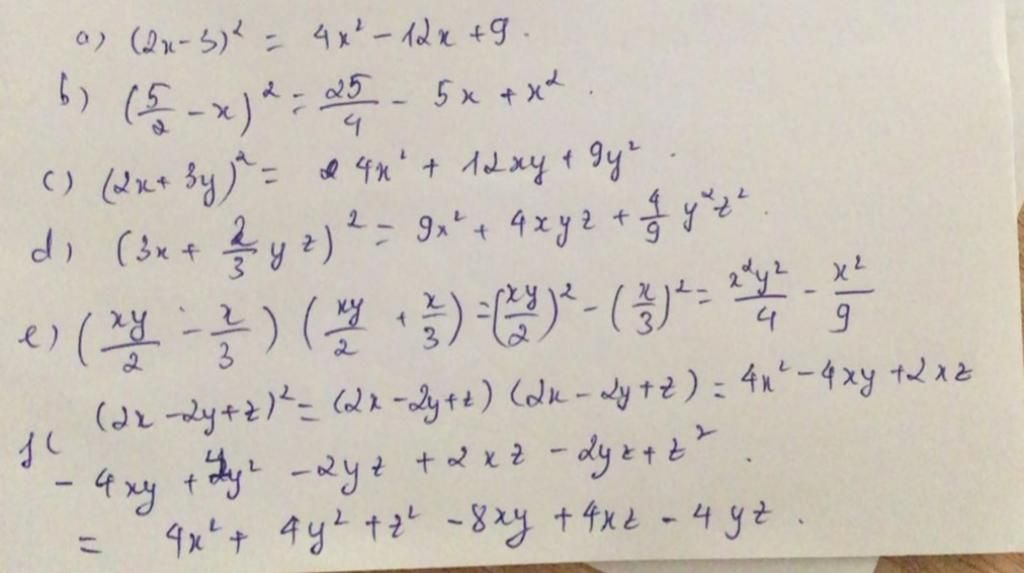 a) (2x-3)² = 4x² - 12x + 9.
b) (5/2 - x)² = 25/4 - 5x + x².
c) (2x + 3y)² = 4x² + 12xy + 9y².
d) (3x + 2/3 yz)² = 9x² + 4xyz + 4/9 y²z².
e) (xy/2 - x/3) (xy/2 + x/3) = (xy/2)² - (x/3)² = x²y²/4 - x²/9
f) (2x - 2y + z)² = (2x - 2y + z) (2x - 2y + z) = 4x² - 4xy + 2xz
- 4xy + 4y² - 2yz + 2xz - 2yz + z².
= 4x² + 4y² + z² - 8xy + 4xz - 4yz.